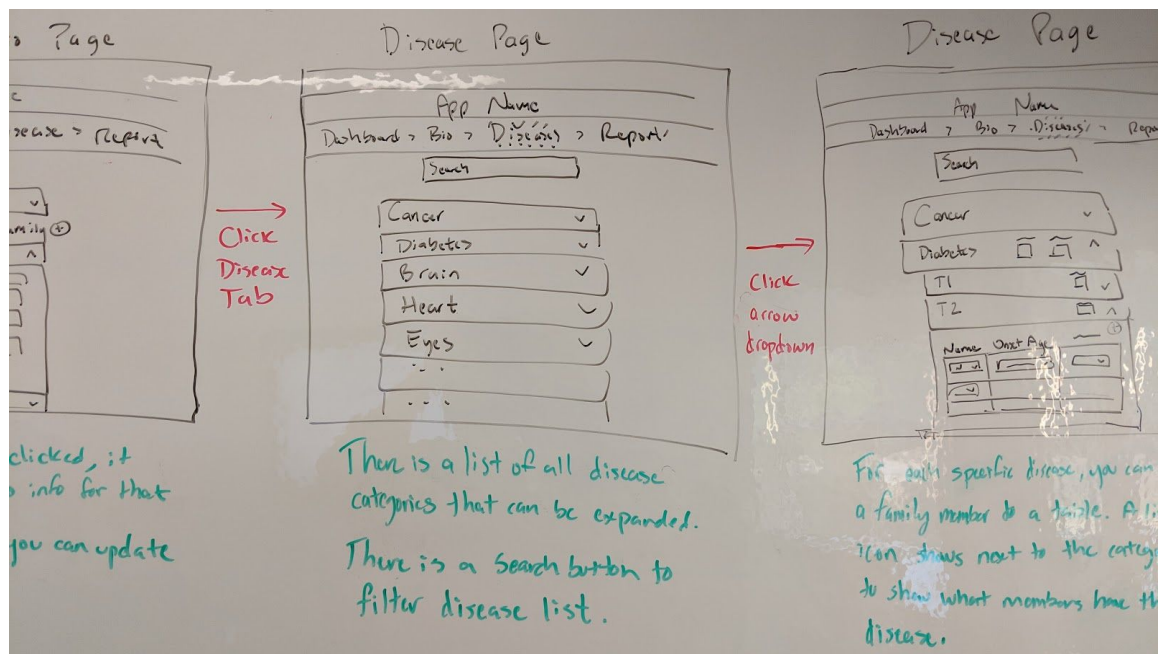 Page
Report
clicked, it
info for that
you can update
Click
Disease
Tab
Disease Page
App Name
Dashboard > Bio > Diseases > Report
Search
Cancer
Diabetes
Brain
Heart
Eyes
...
...
There is a list of all disease
categories that can be expanded.
There is a search button to
filter disease list.
Click
arrow
dropdown
Disease Page
App Name
Dashboard > Bio > Diseases >
Search
Cancer
Diabetes
T1
T2
Name Onset Age
For each specific disease, you can
a family member to a table. A
icon shows next to the
to show what members have
disease.